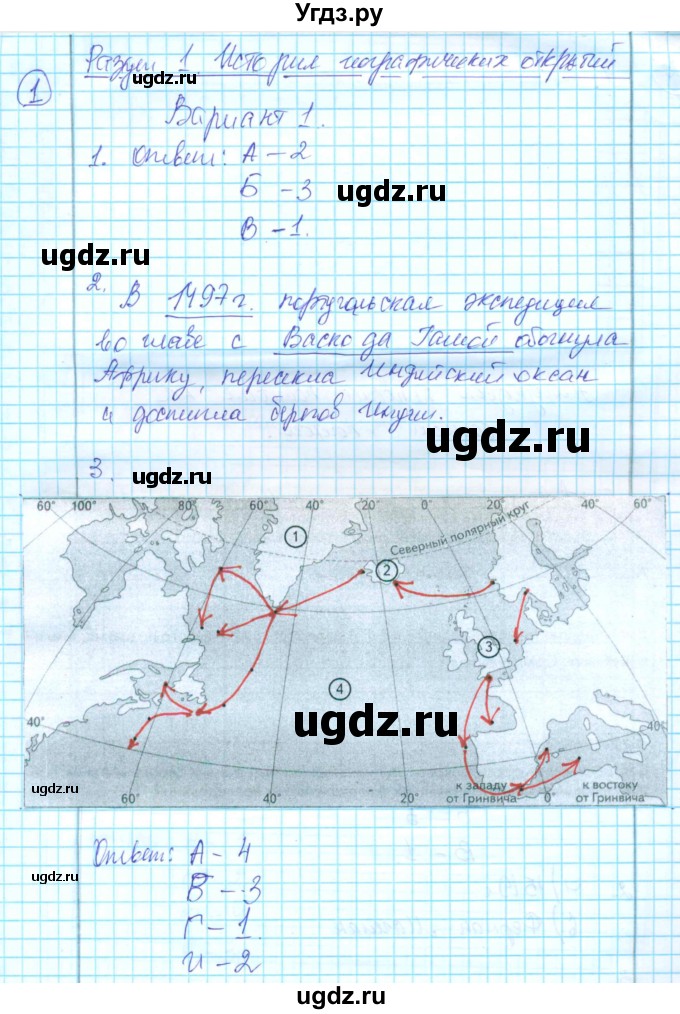 Угдз.ру
Раздел 1 История географических открытий
ugdz.ru
1
Вариант 1.
1. Ответ: А – 2
Б – 3
ugdz.ru
В – 1.
ugdz.ru
2. В 1497 г. португальская экспедиция
во главе с Васко да Гамой обогнула
Африку, пересекла Индийский океан
и достигла берегов Индии.
ugdz.ru
3. ugdz.ru
60° 100° 80° 60° 40° 20° 0° 20° 40° 60°
Северный полярный круг
1
2
3
4
ugdz.ru
40° 40°
к западу от Гринвича
к востоку от Гринвича
60° 40° 20° 0°
Ответ: А – 4
ugdz.ru
Б – 3
Г – 1
И – 2
ugdz.ru
ugdz.ru